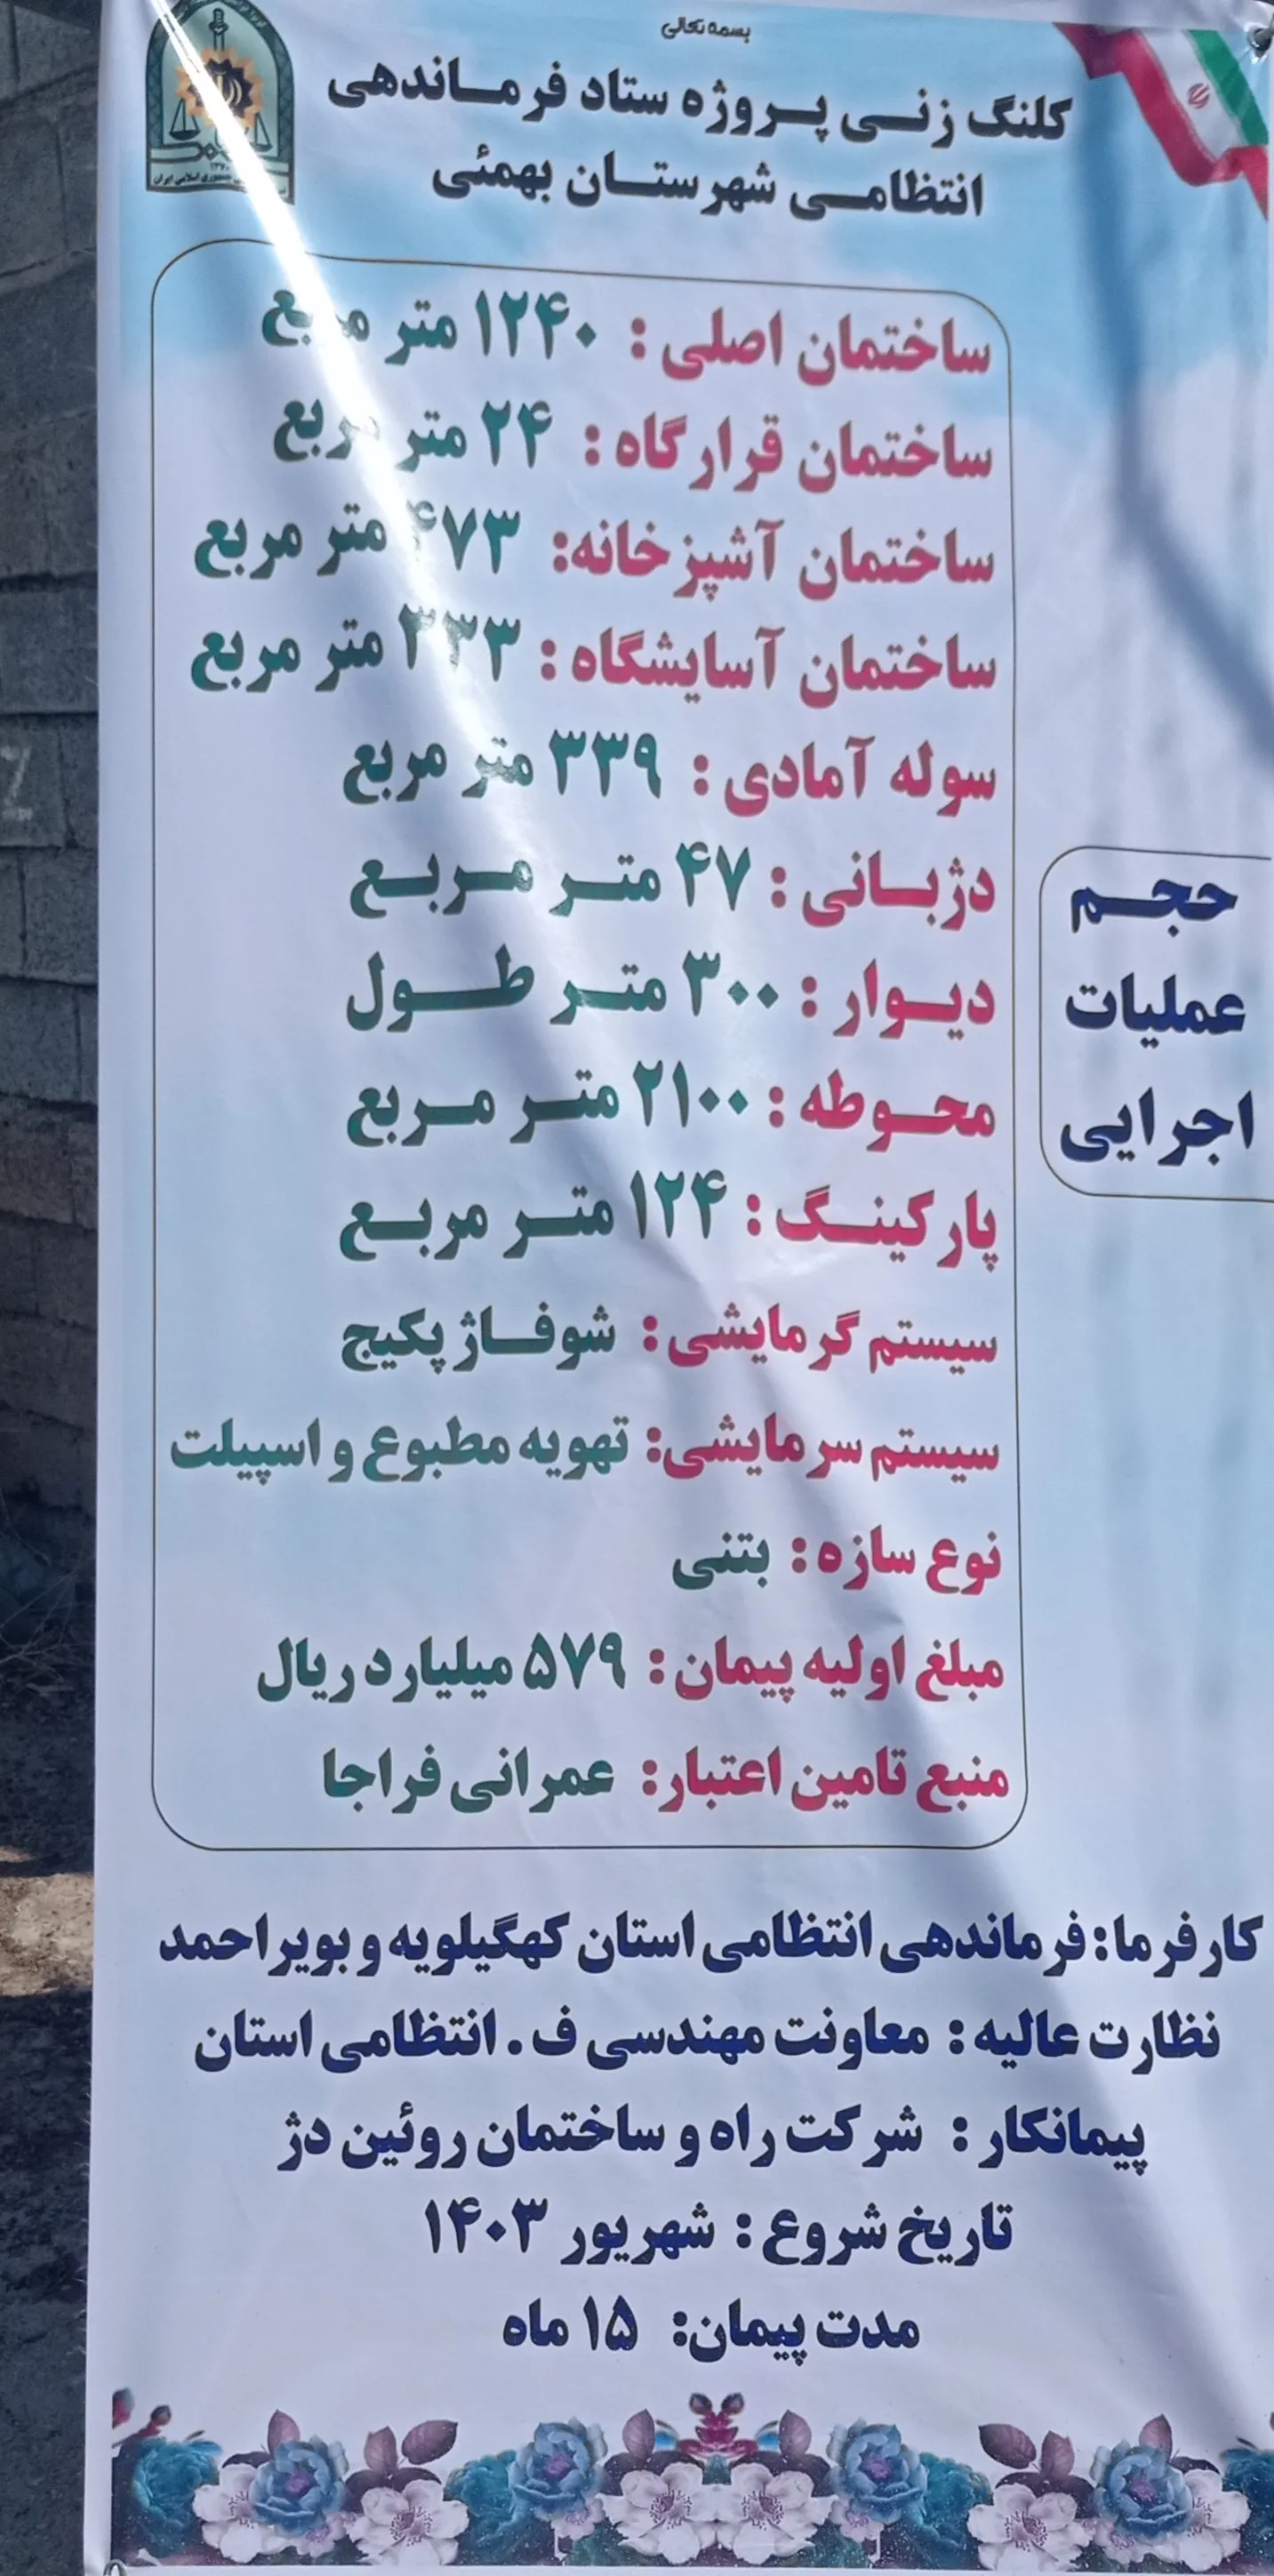 بسمه تعالی
کلنگ زنی پروژه ستاد فرماندهی
انتظامی شهرستان بهمئی
حجم
عملیات
اجرایی
ساختمان اصلی : ۱۲۴۰ متر مربع
ساختمان قرارگاه : ۲۴ متر مربع
ساختمان آشپزخانه: ۴۷۳ متر مربع
ساختمان آسایشگاه : ۳۳۳ متر مربع
سوله آمادی : ۳۳۹ متر مربع
دژبانی : ۴۷ متر مربع
دیوار : ۳۰۰ متر طول
محوطه : ۲۱۰۰ متر مربع
پارکینگ : ۱۲۴ متر مربع
سیستم گرمایشی : شوفاژ پکیج
سیستم سرمایشی: تهویه مطبوع و اسپیلت
نوع سازه : بتنی
مبلغ اولیه پیمان : ۵۷۹ میلیارد ریال
منبع تامین اعتبار: عمرانی فراجا
کارفرما: فرماندهی انتظامی استان کهگیلویه و بویراحمد
نظارت عالیه : معاونت مهندسی ف . انتظامی استان
پیمانکار : شرکت راه و ساختمان روئین دژ
تاریخ شروع : شهریور ۱۴۰۳
مدت پیمان: ۱۵ ماه